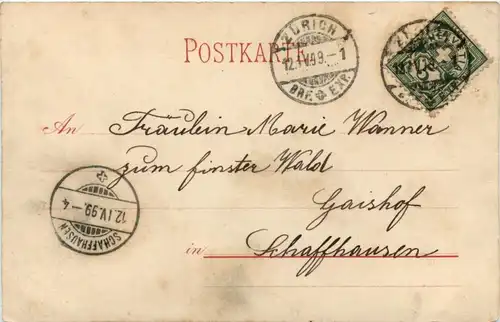 POSTKARTE
ZÜRICH
12.IV.99.-1
BRF. EXP.
5
An Fräulein Marie Wanner
zum finster Wald
Gaishof
in Schaffhausen
12.IV.99.-4
SCHAFFHAUSEN